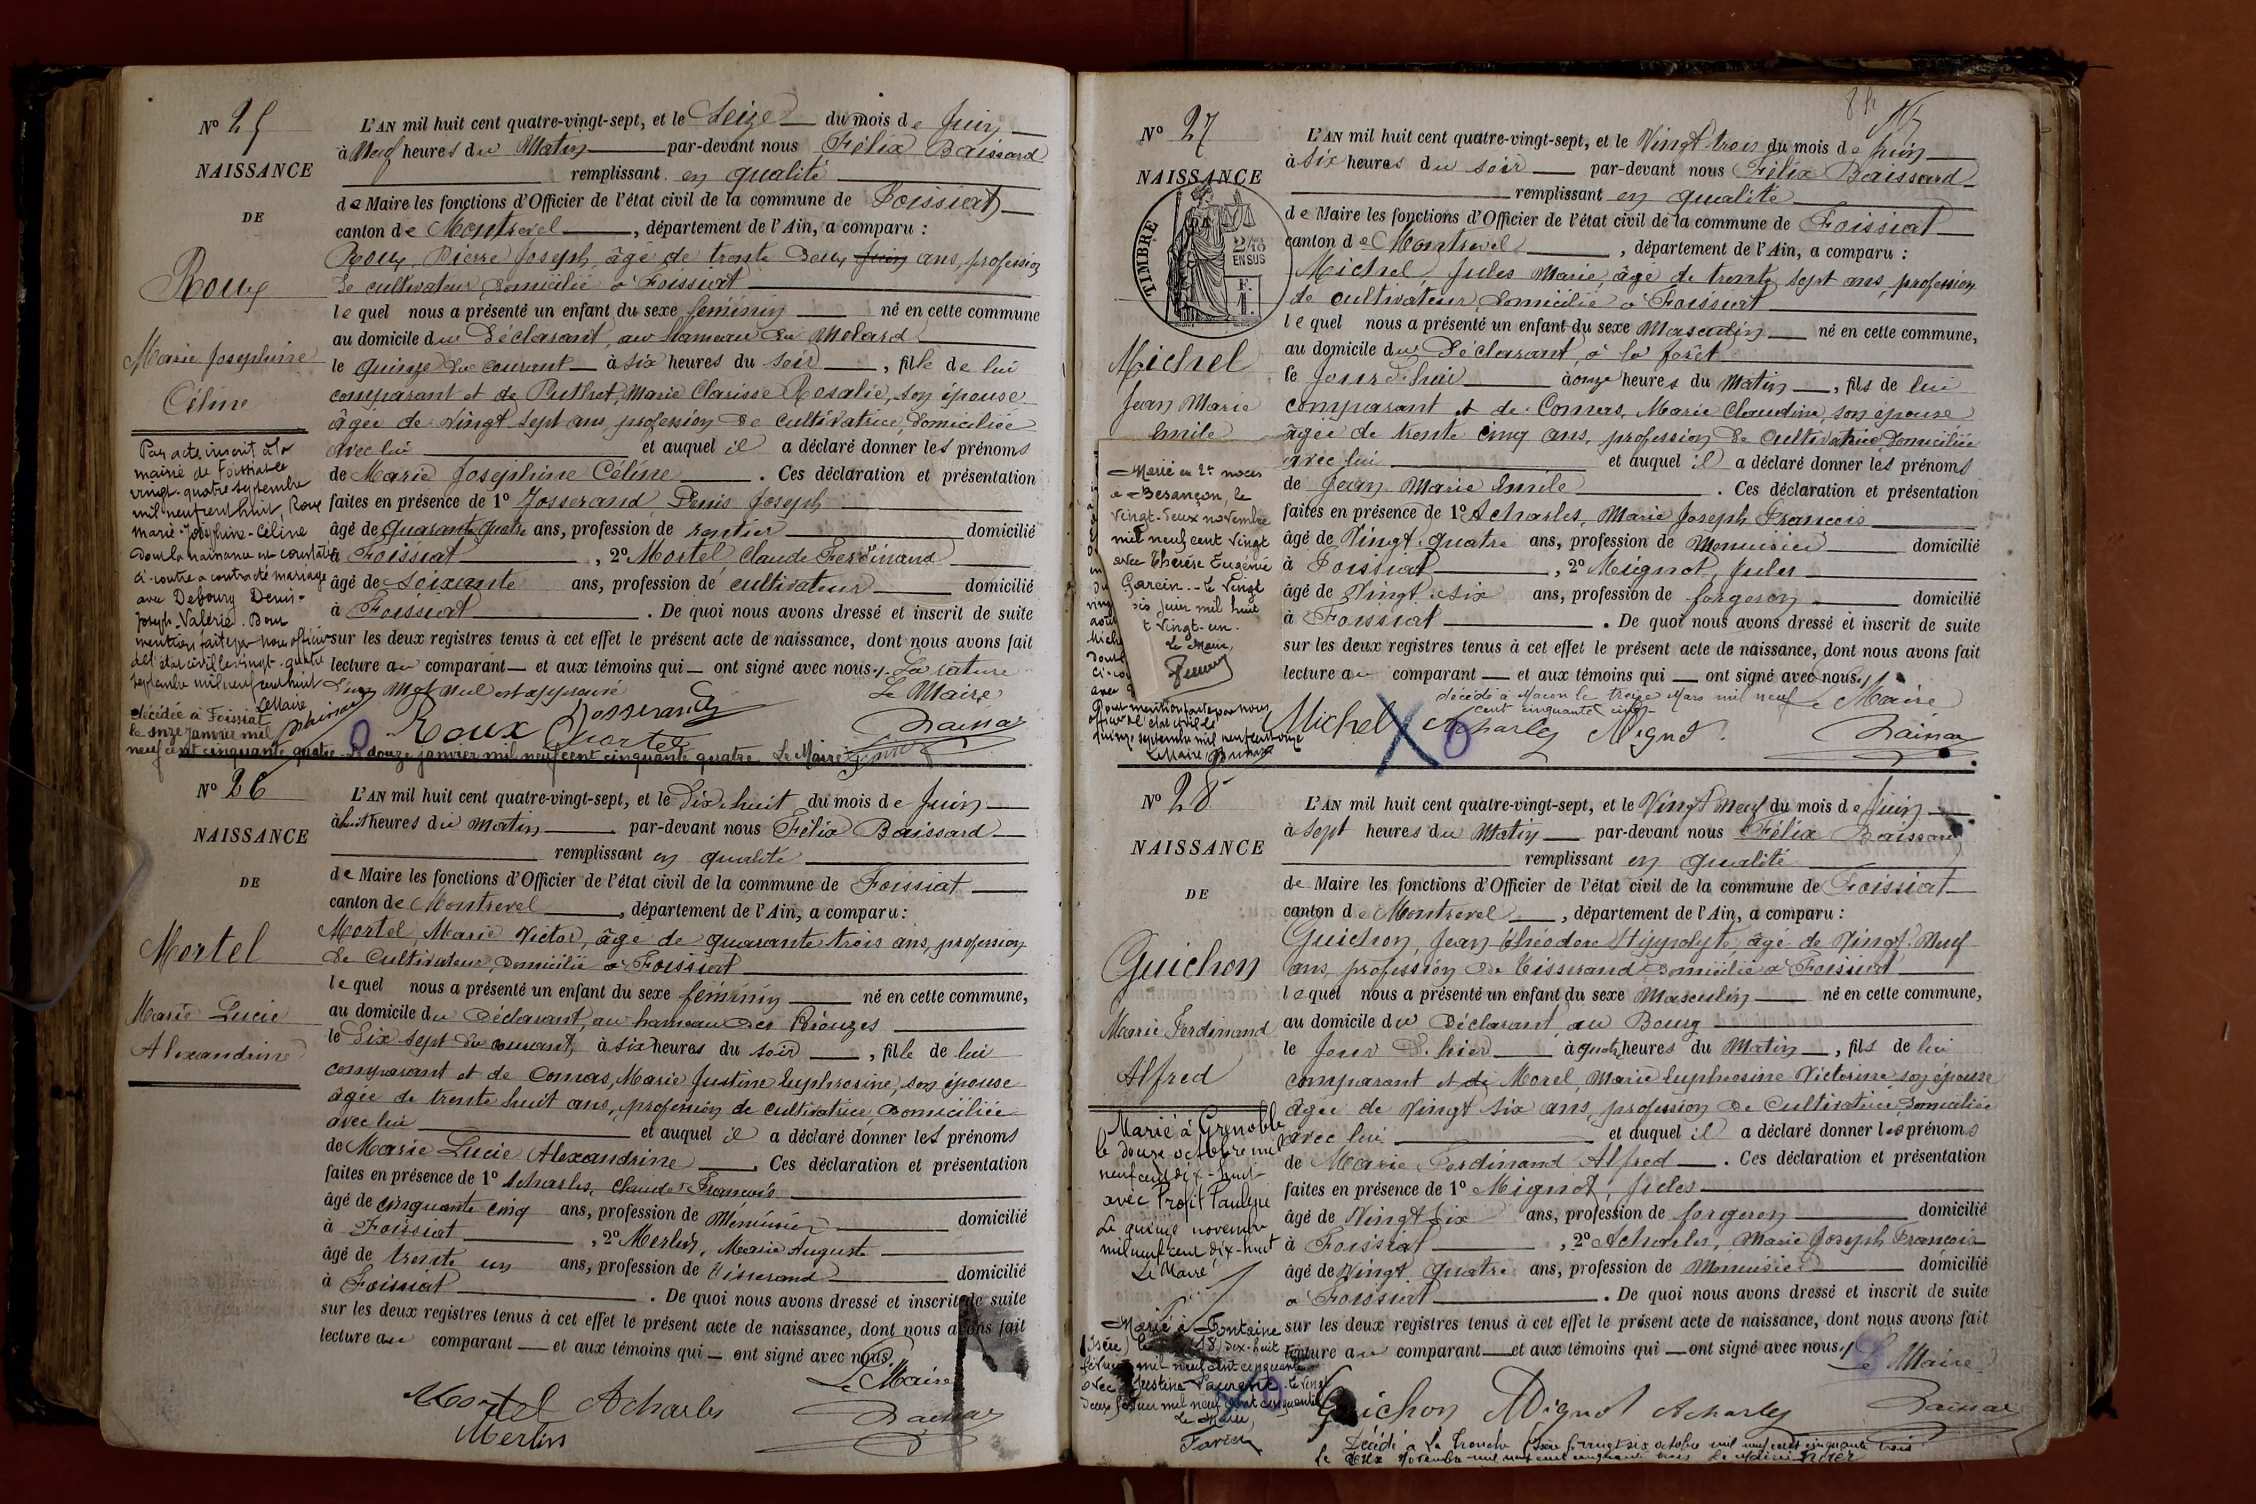 N° 25
NAISSANCE
DE
Roux
Marie Joséphine
Céline
Par acte inscrit à la
mairie de Foissiat le
vingt-quatre septembre
mil neuf cent huit, Roux
Marie-Joséphine-Céline
dont la naissance est constatée
ci-contre a contracté mariage
avec Debourg Denis-
Joseph-Valérie. Pour
mention faite par nous officier
de l'état civil le vingt-quatre
septembre mil neuf cent huit
Le Maire
décédée à Foissiat
le onze janvier mil
neuf cent cinquante quatre. Le douze janvier mil neuf cent cinquante quatre. Le Maire
L'AN mil huit cent quatre-vingt-sept, et le Seize du mois de Juin
à Neuf heures du Matin par-devant nous Félix Baissard
remplissant en qualité
de Maire les fonctions d'Officier de l'état civil de la commune de Foissiat
canton de Montrevel, département de l'Ain, a comparu :
Roux, Pierre Joseph, âgé de trente deux Juin ans, profession
de cultivateur, domicilié à Foissiat
lequel nous a présenté un enfant du sexe féminin né en cette commune
au domicile du Déclarant, au hameau du Molard
le quinze du courant à six heures du soir, fille de lui
comparant et de Puthet, Marie Clarisse Rosalie, son épouse
âgée de Vingt sept ans, profession de Cultivatrice, domiciliée
avec lui et auquel il a déclaré donner les prénoms
de Marie Joséphine Céline. Ces déclaration et présentation
faites en présence de 1° Josserand, Denis Joseph
âgé de quarante quatre ans, profession de rentier domicilié
à Foissiat, 2° Mortel Claude Ferdinand
âgé de soixante ans, profession de cultivateur domicilié
à Foissiat. De quoi nous avons dressé et inscrit de suite
sur les deux registres tenus à cet effet le présent acte de naissance, dont nous avons fait
lecture au comparant et aux témoins qui ont signé avec nous. La rature
d'un mot nul est approuvé
Le Maire
Roux Josserand Mortel
N° 26
NAISSANCE
DE
Mortel
Marie Lucie
Alexandrine
L'AN mil huit cent quatre-vingt-sept, et le Dix-huit du mois de Juin
à huit heures du Matin par-devant nous Félix Baissard
remplissant en qualité
de Maire les fonctions d'Officier de l'état civil de la commune de Foissiat
canton de Montrevel, département de l'Ain, a comparu :
Mortel, Marie Victor, âgé de quarante trois ans, profession
de Cultivateur, domicilié à Foissiat
lequel nous a présenté un enfant du sexe féminin né en cette commune,
au domicile du Déclarant, au hameau des
le Dix sept du courant, à six heures du soir, fille de lui
comparant et de Comas, Marie Justine Euphrosine, son épouse
âgée de trente huit ans, profession de cultivatrice, domiciliée
avec lui et auquel il a déclaré donner les prénoms
de Marie Lucie Alexandrine. Ces déclaration et présentation
faites en présence de 1° Acharles, Claude François
âgé de cinquante cinq ans, profession de Menuisier domicilié
à Foissiat, 2° Merlin, Marie Auguste
âgé de trente un ans, profession de Tisserand domicilié
à Foissiat. De quoi nous avons dressé et inscrit de suite
sur les deux registres tenus à cet effet le présent acte de naissance, dont nous avons fait
lecture au comparant et aux témoins qui ont signé avec nous.
Le Maire
Mortel Acharles
Merlin
84
N° 27
NAISSANCE
TIMBRE
2/10 EN SUS
Michel
Jean Marie
Emile
Marié en 2es noces
à Besançon, le
vingt-deux novembre
mil neuf cent vingt
avec Thérèse Eugénie
Garcin. Le vingt
Le Maire,
Pour mention faite par nous
officier de l'état civil le
quinze septembre mil neuf cent onze
Le Maire
L'AN mil huit cent quatre-vingt-sept, et le Vingt-trois du mois de Juin
à six heures du soir par-devant nous Félix Baissard
remplissant en qualité
de Maire les fonctions d'Officier de l'état civil de la commune de Foissiat
canton de Montrevel, département de l'Ain, a comparu :
Michel, Jules Marie, âgé de trente sept ans, profession
de cultivateur, domicilié à Foissiat
lequel nous a présenté un enfant du sexe Masculin né en cette commune,
au domicile du Déclarant, à la forêt
le Jour d'hui à onze heures du Matin, fils de lui
comparant et de Comas, Marie Claudine, son épouse
âgée de trente cinq ans, profession de Cultivatrice, domiciliée
avec lui et auquel il a déclaré donner les prénoms
de Jean Marie Emile. Ces déclaration et présentation
faites en présence de 1° Acharles, Marie Joseph François
âgé de Vingt-quatre ans, profession de Menuisier domicilié
à Foissiat, 2° Mignot, Jules
âgé de Vingt-six ans, profession de forgeron domicilié
à Foissiat. De quoi nous avons dressé et inscrit de suite
sur les deux registres tenus à cet effet le présent acte de naissance, dont nous avons fait
lecture au comparant et aux témoins qui ont signé avec nous.
décédé à Macon le treize Mars mil neuf
cent cinquante cinq
Le Maire
Michel Acharles Mignot
N° 28
NAISSANCE
DE
Guichon
Marie Ferdinand
Alfred
Marié à Grenoble
le douze octobre mil
neuf cent dix-huit
avec Profit Pauline
Le quinze novembre
mil neuf cent dix-huit
Le Maire
Marié à Fontaine
(Isère) le (18) dix-huit
février mil neuf cent cinquante
avec Justine Laurence. Le vingt
deux février mil neuf cent cinquante
Le Maire,
L'AN mil huit cent quatre-vingt-sept, et le Vingt neuf du mois de Juin
à sept heures du Matin par-devant nous Félix Baissard
remplissant en qualité
de Maire les fonctions d'Officier de l'état civil de la commune de Foissiat
canton de Montrevel, département de l'Ain, a comparu :
Guichon, Jean Théodore Hippolyte, âgé de Vingt-Neuf
ans, profession de Tisserand domicilié à Foissiat
lequel nous a présenté un enfant du sexe Masculin né en cette commune,
au domicile du Déclarant, au Bourg
le Jour d'hier à quatre heures du Matin, fils de lui
comparant et de Morel, Marie Euphrosine Victorine, son épouse
âgée de Vingt six ans, profession de Cultivatrice, domiciliée
avec lui et auquel il a déclaré donner les prénoms
de Marie Ferdinand Alfred. Ces déclaration et présentation
faites en présence de 1° Mignot, Jules
âgé de Vingt six ans, profession de forgeron domicilié
à Foissiat, 2° Acharles, Marie Joseph François
âgé de Vingt quatre ans, profession de Menuisier domicilié
à Foissiat. De quoi nous avons dressé et inscrit de suite
sur les deux registres tenus à cet effet le présent acte de naissance, dont nous avons fait
lecture au comparant et aux témoins qui ont signé avec nous.
Le Maire
Guichon Mignot Acharles
Décédé à La Tronche (Isère) le vingt six octobre mil neuf cent cinquante trois
le deux Novembre mil neuf cent cinquante trois Le Maire